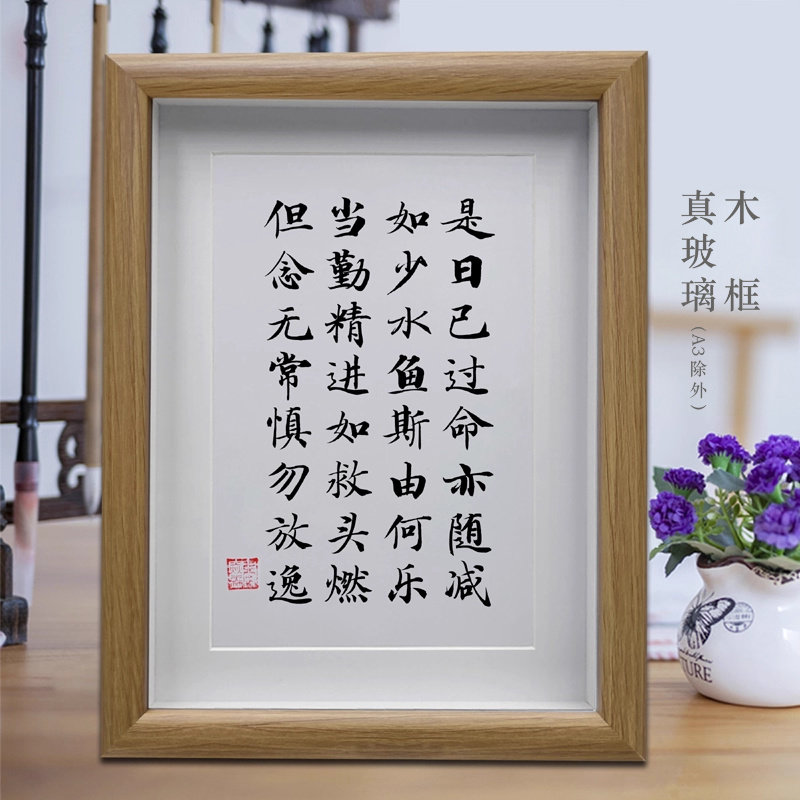 是日已过命亦随减
如少水鱼斯由何乐
当勤精进如救头燃
但念无常慎勿放逸
木框
真玻璃(A3除外)
TURE